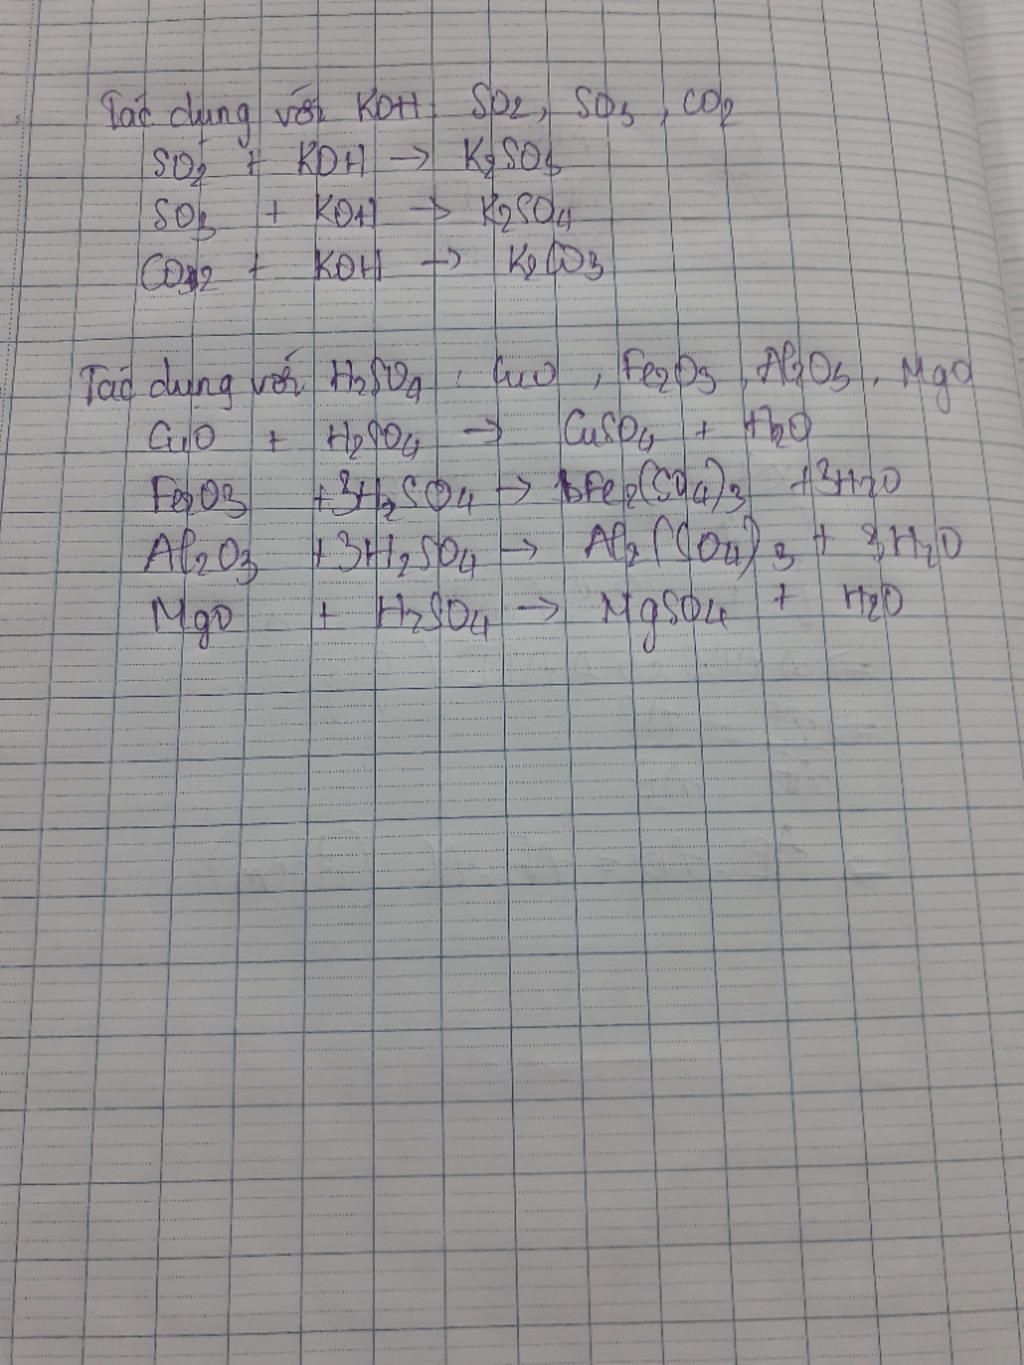 Tác dụng với KOH SO2, SO3, CO2
SO2 + KOH → K2SO3
SO3 + KOH → K2SO4
CO2 + KOH → K2CO3
Tác dụng với H2SO4 : CuO, Fe2O3, Al2O3, MgO
CuO + H2SO4 → CuSO4 + H2O
Fe2O3 +3H2SO4 → Fe2(SO4)3 +3H2O
Al2O3 +3H2SO4 → Al2(SO4)3 + 3H2O
MgO + H2SO4 → MgSO4 + H2O